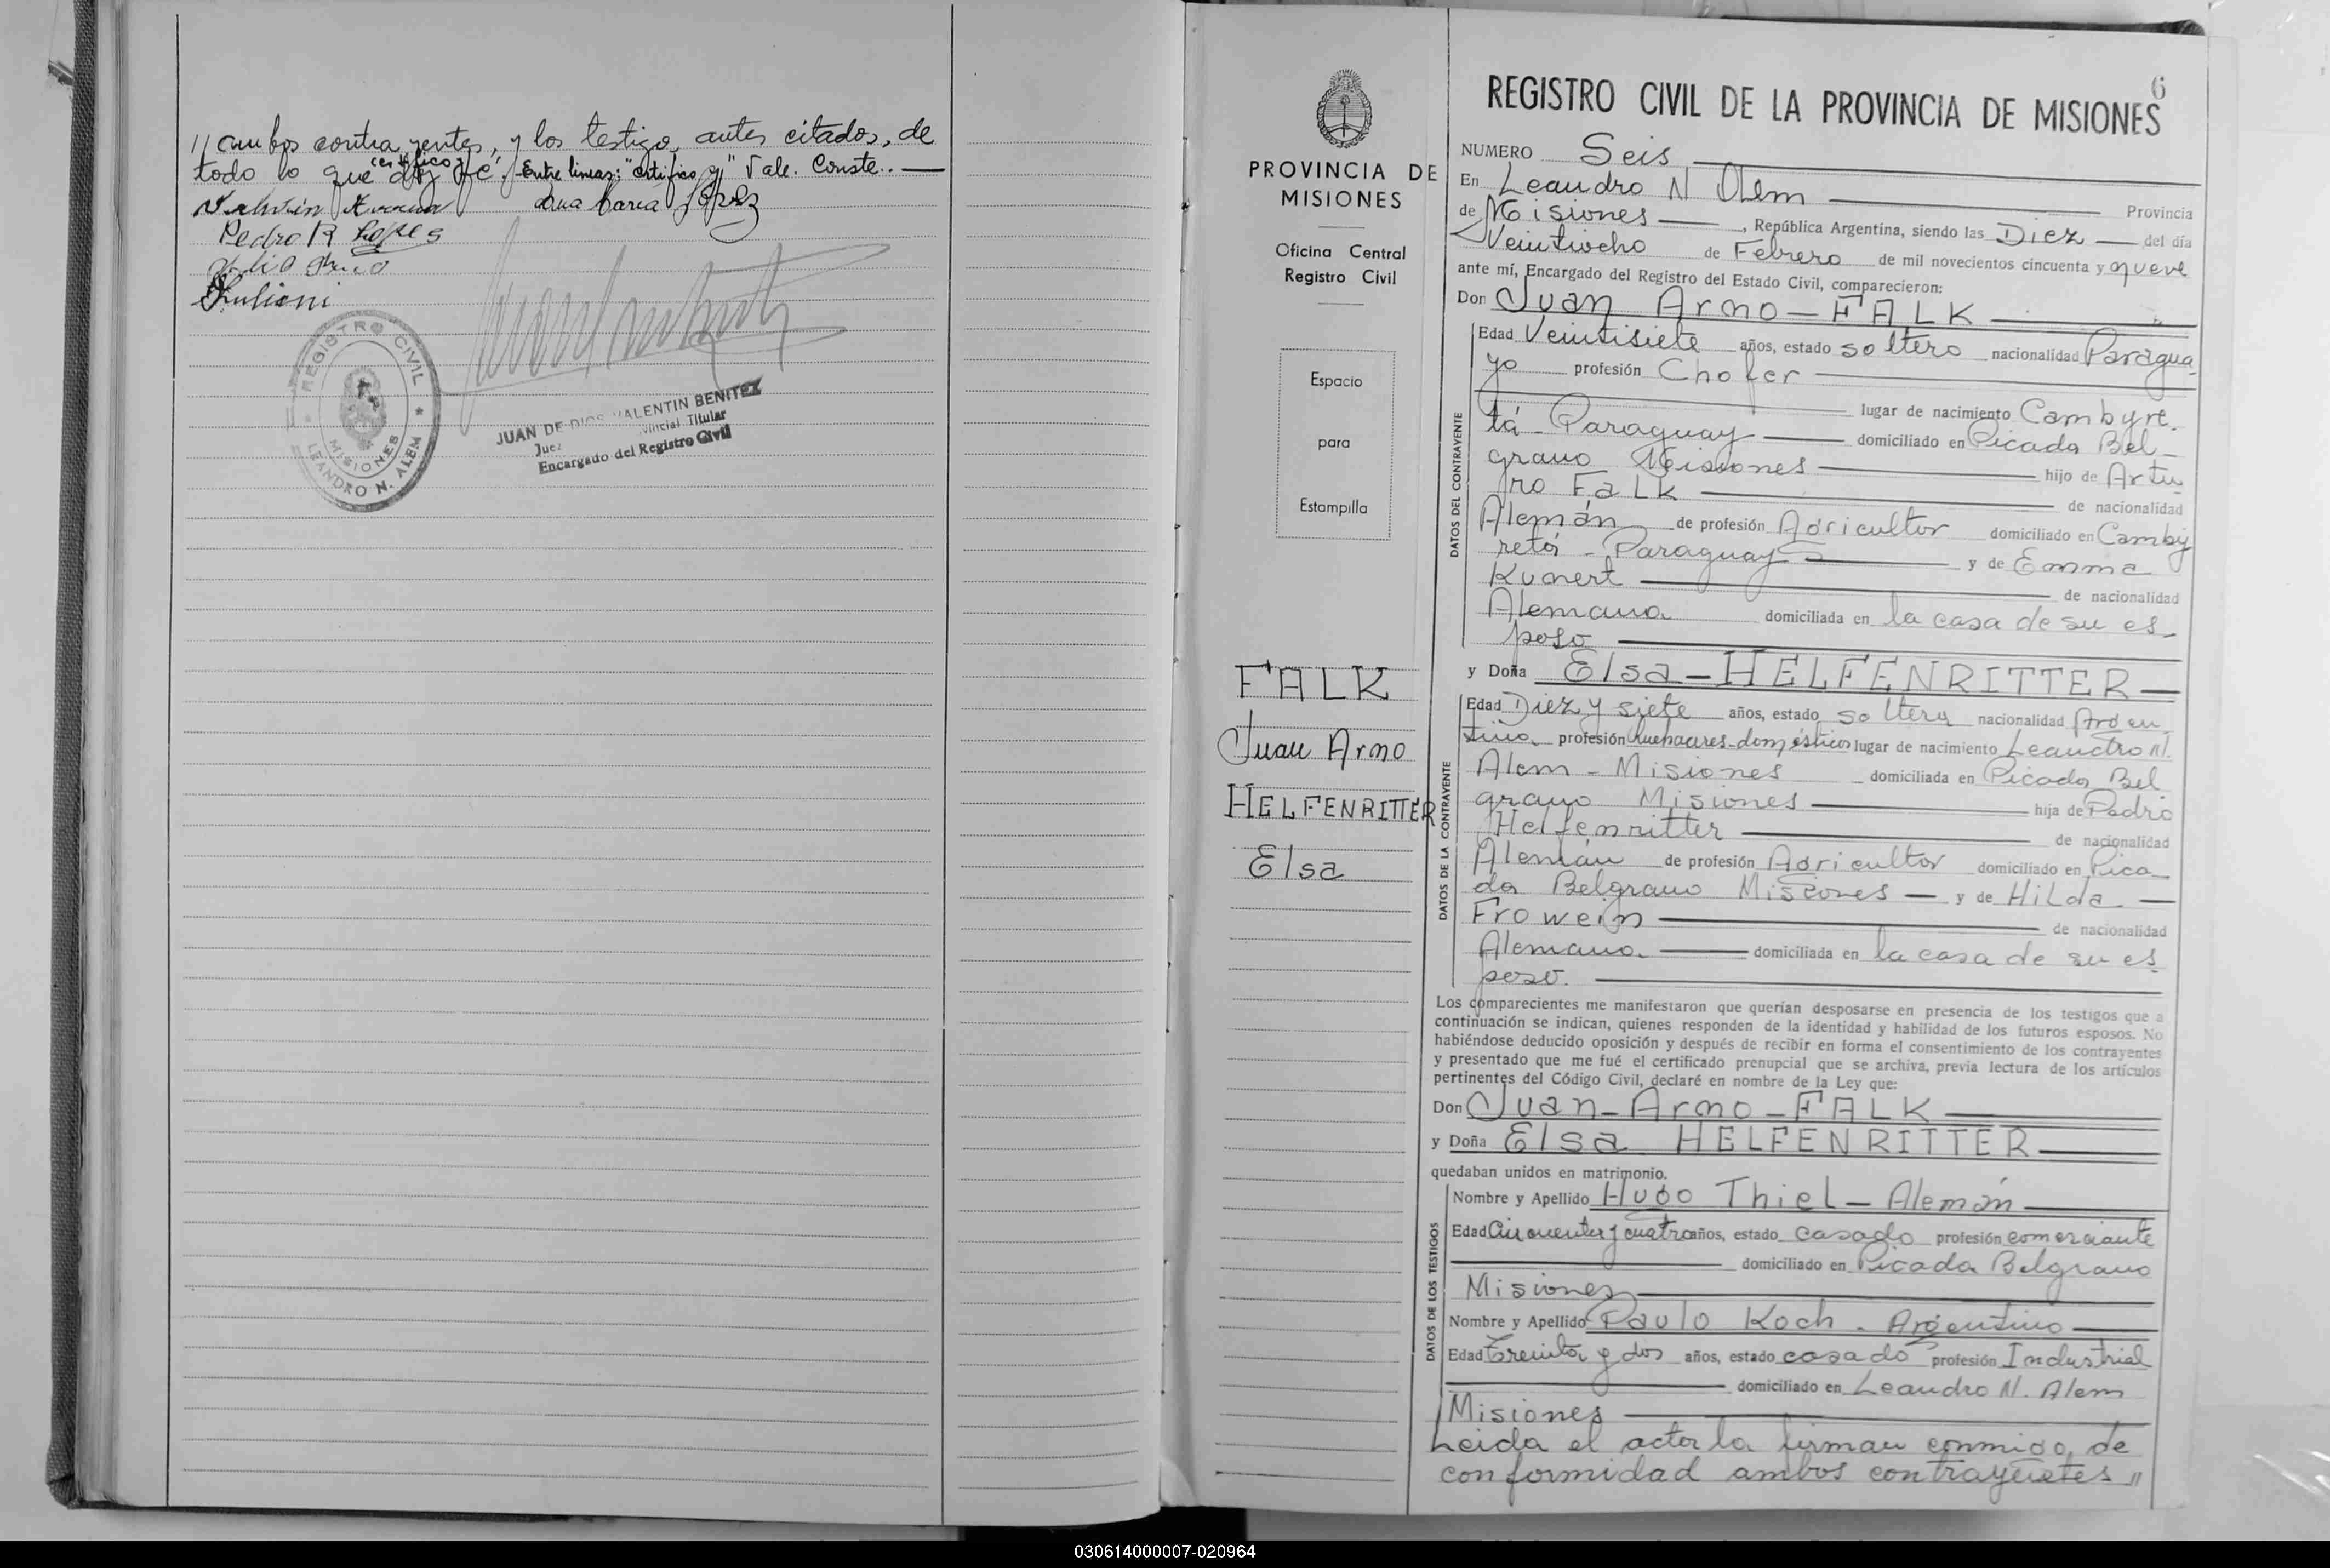 // ambos contrayentes, y los testigo, antes citados, de
certifico y
todo lo que doy fé. Entre lineas: "certifico y" Vale. Conste..—
Ana Maria López
Pedro R López
Giulioni
REGISTRO CIVIL
MISIONES
LEANDRO N. ALEM
JUAN DE DIOS VALENTIN BENITEZ
Juez Titular
Encargado del Registro Civil
PROVINCIA DE
MISIONES
Oficina Central
Registro Civil
Espacio
para
Estampilla
FALK
Juan Arno
HELFENRITTER
Elsa
6
REGISTRO CIVIL DE LA PROVINCIA DE MISIONES
NUMERO Seis
En Leandro N Alem Provincia
de Misiones, República Argentina, siendo las Diez del día
Veintiocho de Febrero de mil novecientos cincuenta y nueve
ante mí, Encargado del Registro del Estado Civil, comparecieron:
Don Juan Arno - FALK
Edad Veintisiete años, estado soltero nacionalidad Paragua
yo profesión Chofer
lugar de nacimiento Cambyre.
tá - Paraguay domiciliado en Picada Bel-
grano Misiones hijo de Artu
ro Falk de nacionalidad
Alemán de profesión Agricultor domiciliado en Camby
retá - Paraguay y de Emma
Kunert de nacionalidad
Alemana domiciliada en la casa de su es-
poso
y Doña Elsa - HELFENRITTER
Edad Diez y siete años, estado soltera nacionalidad Argen
tina profesión Quehaceres-domésticos lugar de nacimiento Leandro N.
Alem - Misiones domiciliada en Picada Bel
grano Misiones hija de Pedro
Helfenritter de nacionalidad
Alemán de profesión Agricultor domiciliado en Pica-
da Belgrano Misiones — y de Hilda —
Frowein de nacionalidad
Alemana. domiciliada en la casa de su es
poso.
Los comparecientes me manifestaron que querían desposarse en presencia de los testigos que a
continuación se indican, quienes responden de la identidad y habilidad de los futuros esposos. No
habiéndose deducido oposición y después de recibir en forma el consentimiento de los contrayentes
y presentado que me fué el certificado prenupcial que se archiva, previa lectura de los artículos
pertinentes del Código Civil, declaré en nombre de la Ley que:
Don Juan - Arno - FALK
y Doña Elsa HELFENRITTER
quedaban unidos en matrimonio.
Nombre y Apellido Hugo Thiel - Alemán
Edad Cincuenta y cuatro años, estado casado profesión comerciante
domiciliado en Picada Belgrano
Misiones
Nombre y Apellido Paulo Koch - Argentino
Edad Treinta y dos años, estado casado profesión Industrial
domiciliado en Leandro N. Alem
Misiones
Leida el acta la firman conmigo, de
conformidad ambos contrayentes //
DATOS DEL CONTRAYENTE
DATOS DE LA CONTRAYENTE
DATOS DE LOS TESTIGOS
030614000007-020964